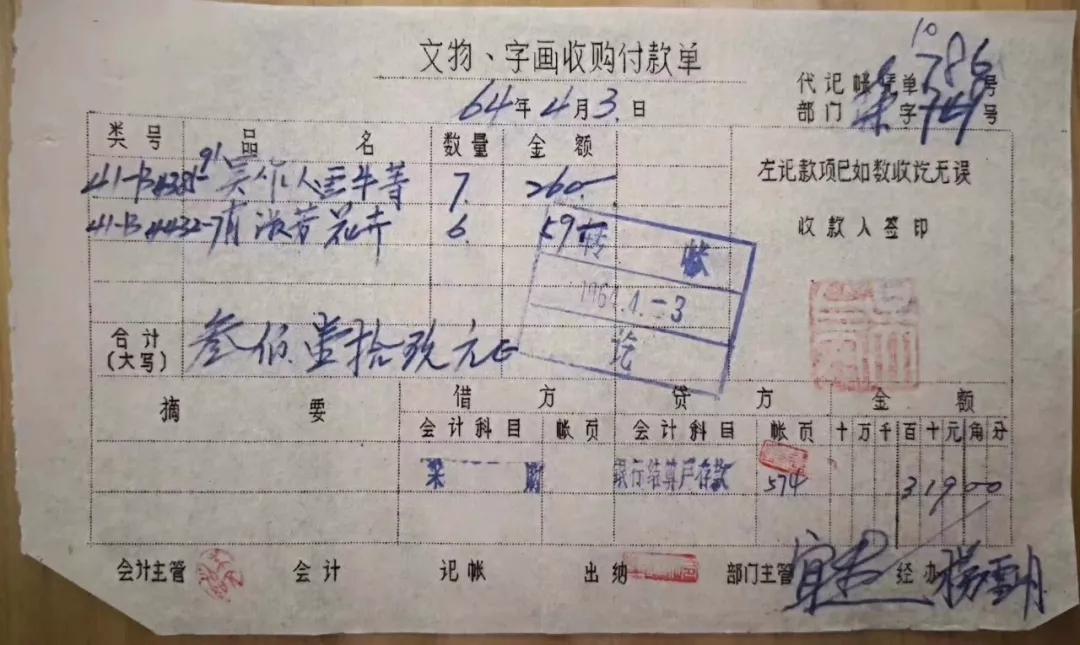 文物、字画收购付款单
10
代记帐凭单 786 号
64年4月3日
部门 字 号
类号 品名 数量 金额
41-B4385-91 吴作人画牛等 7. 260
左记款项已如数收讫无误
41-B4432-7 花卉 6. 59
收款人签印
转帐
1964.4.-3
讫
合计(大写) 叁佰壹拾玖元正
摘要 借方 贷方 金额
会计科目 帐页 会计科目 帐页 十万千百十元角分
银行结算户存款 574 31900
会计主管 会计 记帐 出纳 部门主管 经办